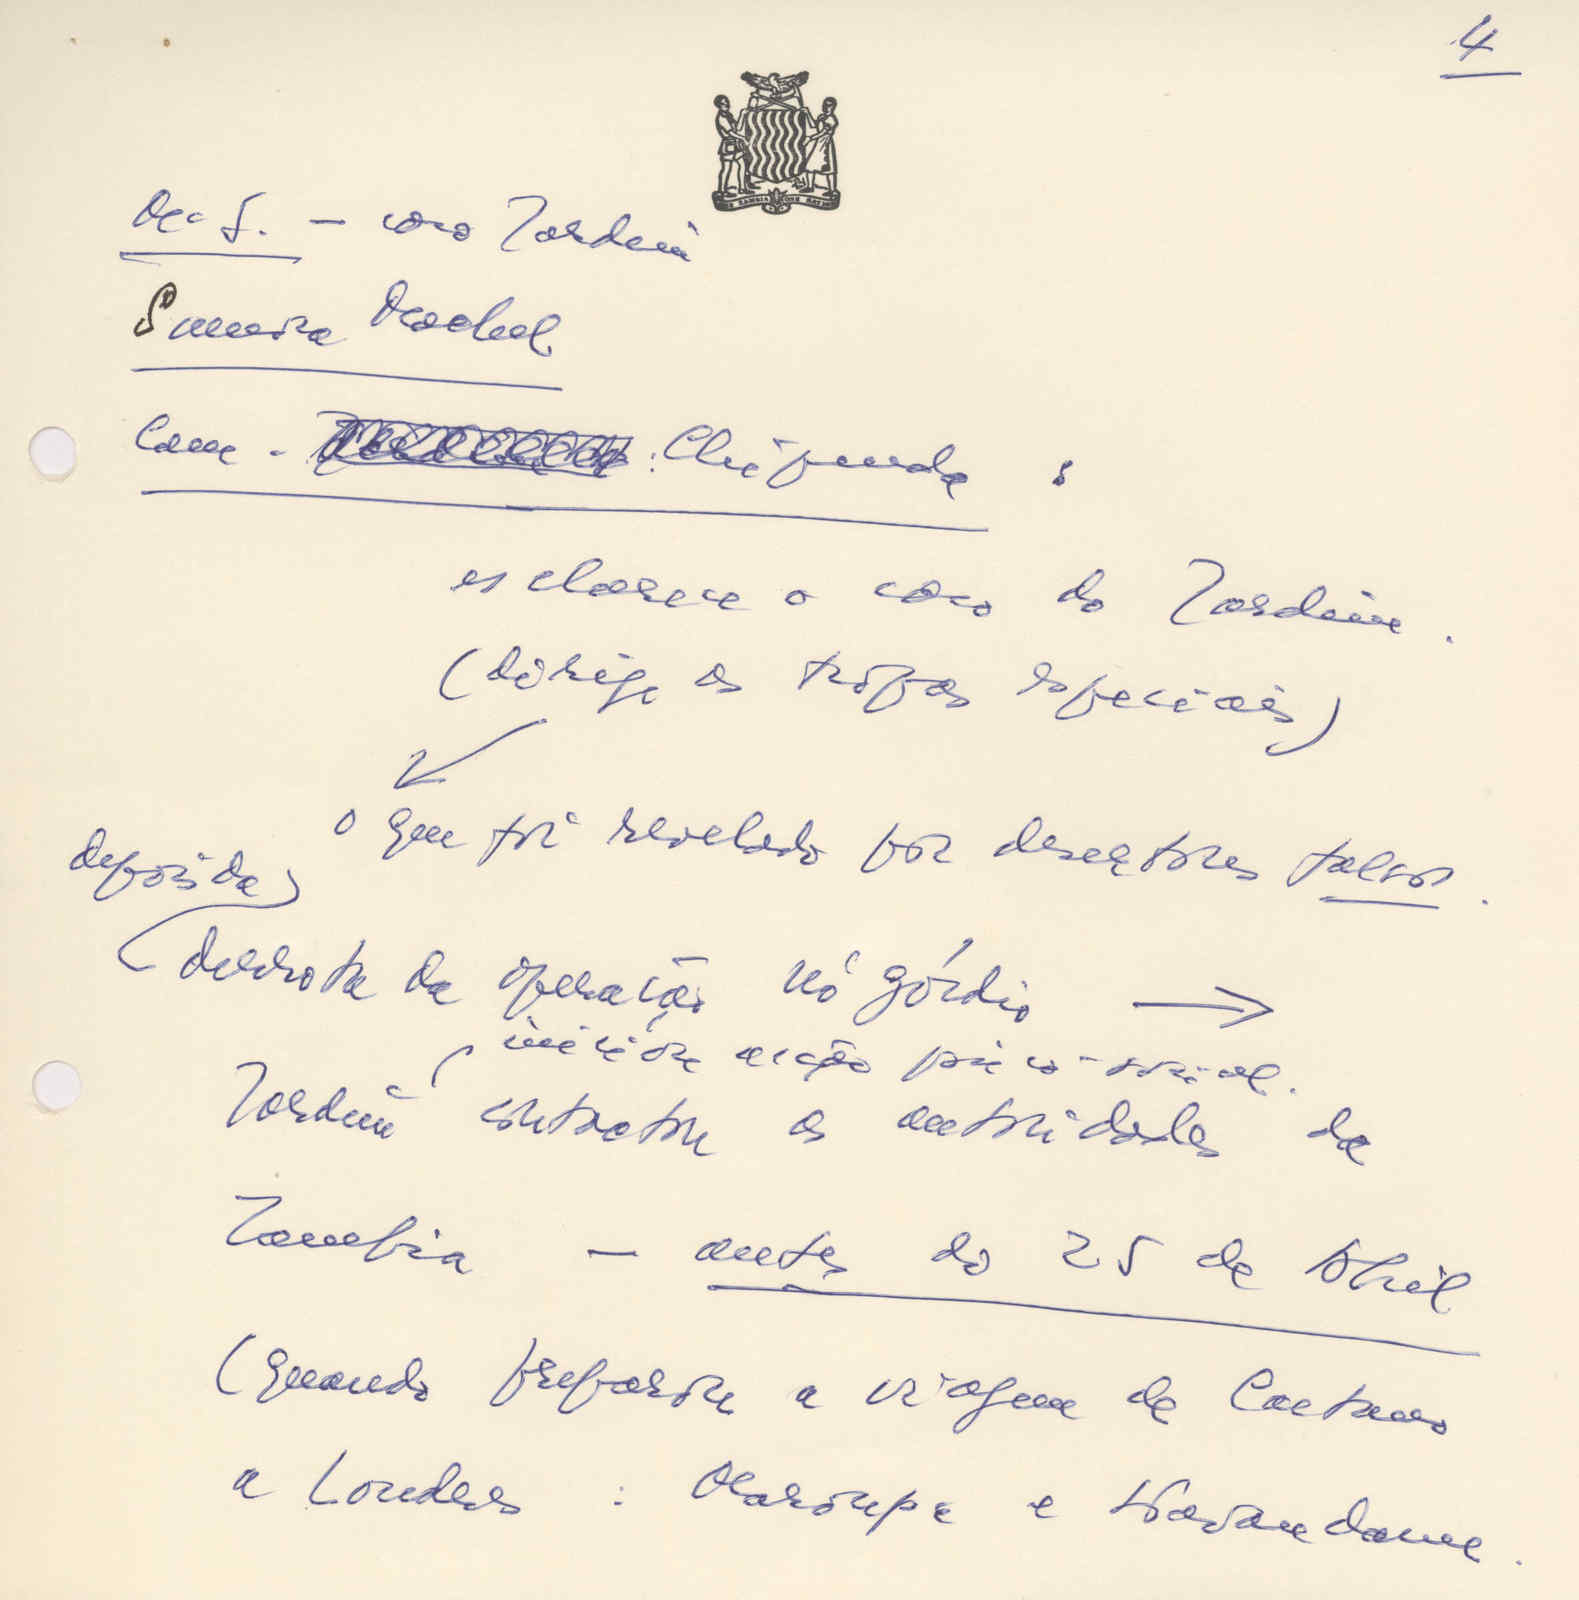 4
M. S. — caso Jardim
Samora Machel
Cam. : Chipande :
esclarece o caso do Jardim.
(dirige as tropas especiais)
o que foi revelado por desertores falsos.
depois da
derrota da operação nó górdio →
iniciou acção psico-social.
Jardim contactou as autoridades da
Zambia — antes do 25 de Abril
(quando preparou a viagem de Caetano
a Londres : Marrupa e Wiriyamu.